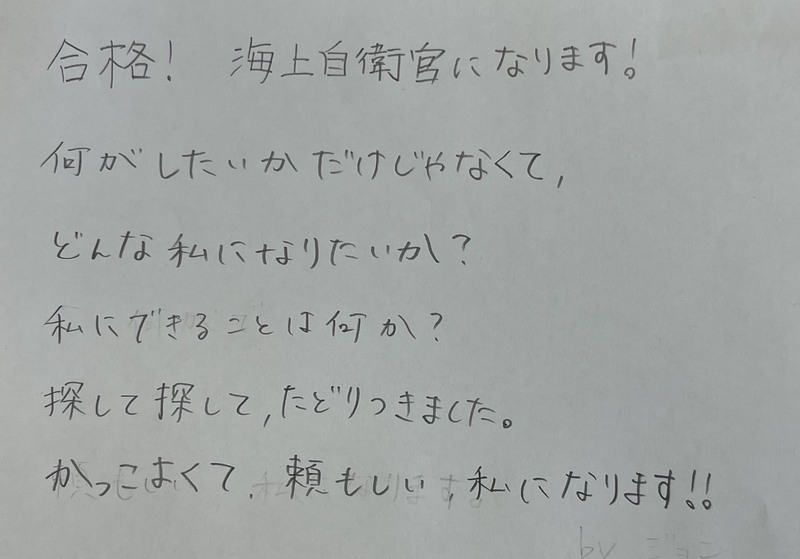 合格! 海上自衛官になります!
何がしたいかだけじゃなくて,
どんな私になりたいか?
私にできることは何か?
探して探して,たどりつきました。
かっこよくて,頼もしい,私になります!!
by